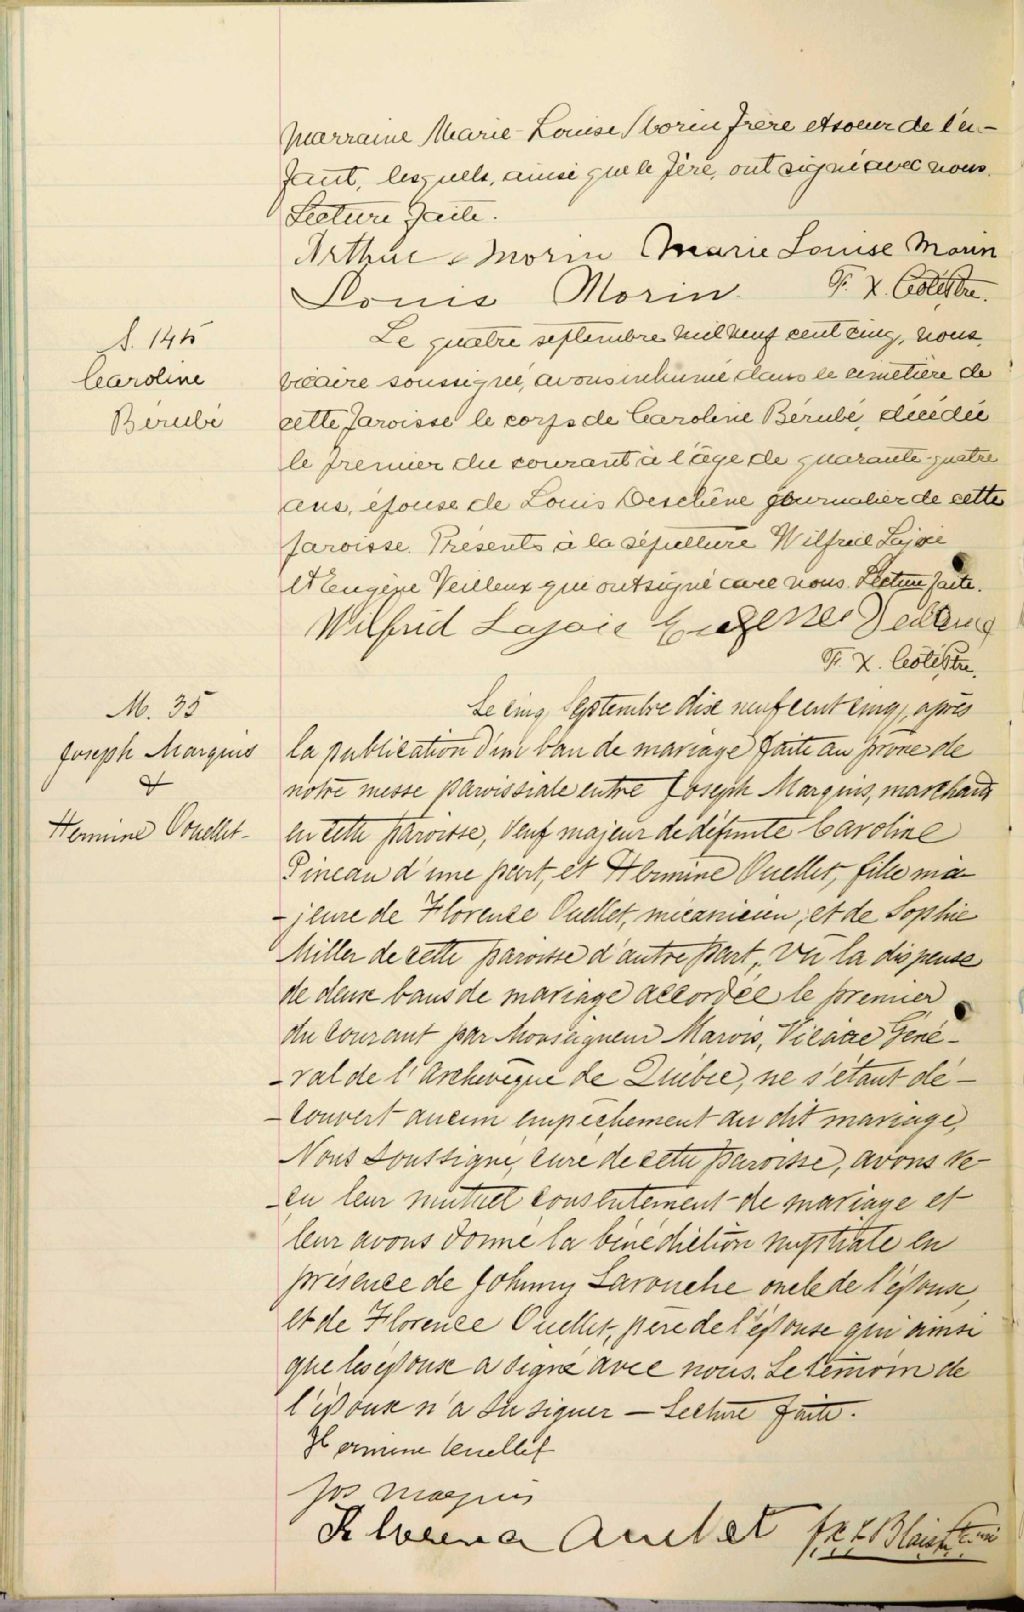 marraine Marie-Louise Morin frère et soeur de l'en-
fant, lesquels, ainsi que le père, ont signé avec nous.
Lecture faite.
Arthur Morin Marie Louise Morin
Louis Morin F. X. Côté, Ptre.
S. 145
Caroline
Bérubé
Le quatre septembre mil neuf cent cinq, nous,
vicaire soussigné, avons inhumé dans le cimetière de
cette paroisse le corps de Caroline Bérubé, décédée
le premier du courant à l'âge de quarante-quatre
ans, épouse de Louis Deschêne journalier de cette
paroisse. Présents à la sépulture Wilfrid Lajoie
et Eugène Veilleux qui ont signé avec nous. Lecture faite.
Wilfrid Lajoie Eugene
F. X. Côté, Ptre.
M. 35
Joseph Marquis
&
Hermine Ouellet
Le cinq Septembre dix neuf cent cinq, après
la publication d'un ban de mariage faite au prône de
notre messe paroissiale entre Joseph Marquis, marchand
en cette paroisse, Veuf majeur de défunte Caroline
Pineau d'une part, et Hermine Ouellet, fille ma-
-jeure de Florence Ouellet, mécanicien, et de Sophie
Miller de cette paroisse d'autre part, Vu la dispense
de deux bans de mariage accordée le premier
du courant par Monseigneur Marois, Vicaire Géné-
-ral de l'Archevêque de Québec, ne s'étant dé-
-couvert aucun empêchement au dit mariage,
Nous soussigné, curé de cette paroisse, avons re-
-çu leur mutuel consentement de mariage et
leur avons donné la bénédiction nuptiale en
présence de Johnny Larouche oncle de l'époux,
et de Florence Ouellet, père de l'épouse qui ainsi
que les époux a signé avec nous. Le témoin de
l'époux n'a su signer — Lecture faite.
Hermine Ouellet
Jos Marquis